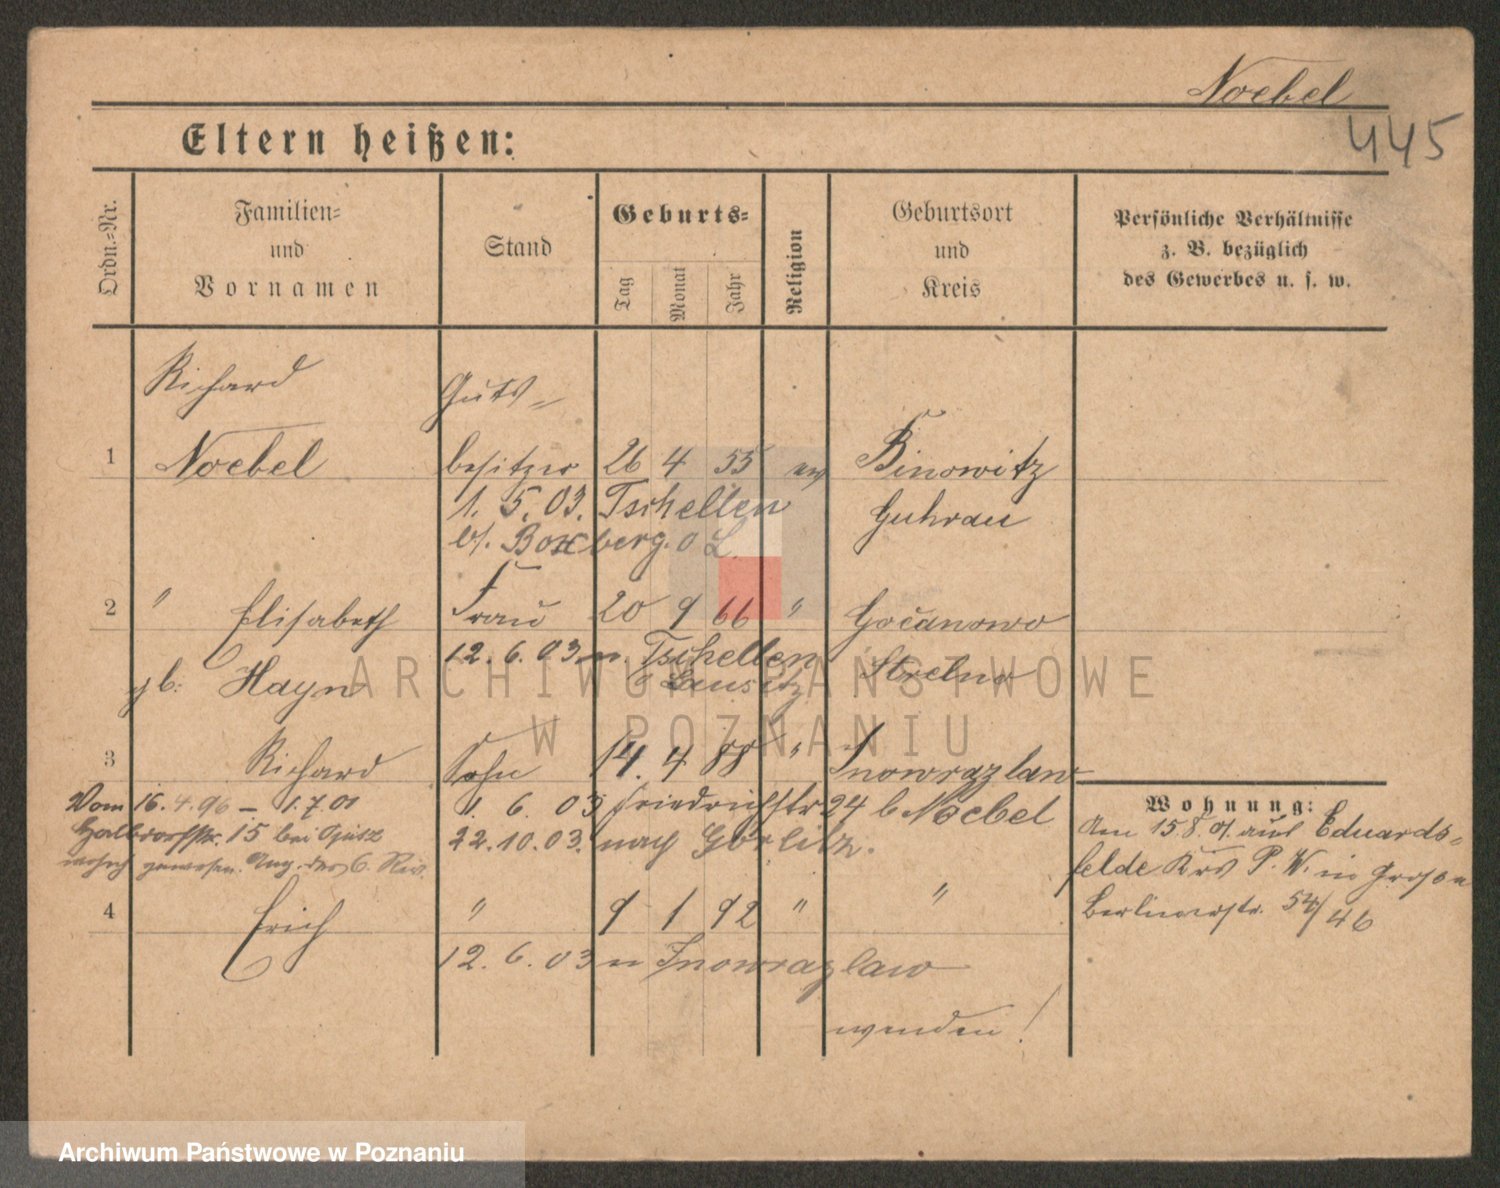 Noebel
445
Eltern heißen:
Ordn.-Nr.
Familien-
und
Vornamen
Stand
Geburts-
Tag
Monat
Jahr
Religion
Geburtsort
und
Kreis
Persönliche Verhältnisse
z. B. bezüglich
des Gewerbes u. s. w.
Richard Guts-
1 Noebel besitzer 26 4 55 ev Binowitz
1. 5. 03. Tschellen Guhrau
b/. Boxberg. O L.
2 " Elisabeth Frau 20 9 66 " Gočanowo
12. 6. 03. n. Tschellen Strelno
gb: Hayn Lausitz
3 Richard Sohn 14. 4 88 " Inowrazlaw
Vom 16.4.96 – 1.7.01 1. 6. 03 Friedrichstr 24 b Noebel
Halbdorfstr. 15 bei 22.10.03. nach Görlitz.
gewesen. 6. Rev.
4 Erich " 9 1 92 " "
12. 6. 03 n Inowrazlaw
wenden!
Wohnung:
Am 15.8. 01. aus Eduards-
felde Krs P. W. in
Berlinerstr. 54/46
ARCHIWUM PAŃSTWOWE
W POZNANIU
Archiwum Państwowe w Poznaniu